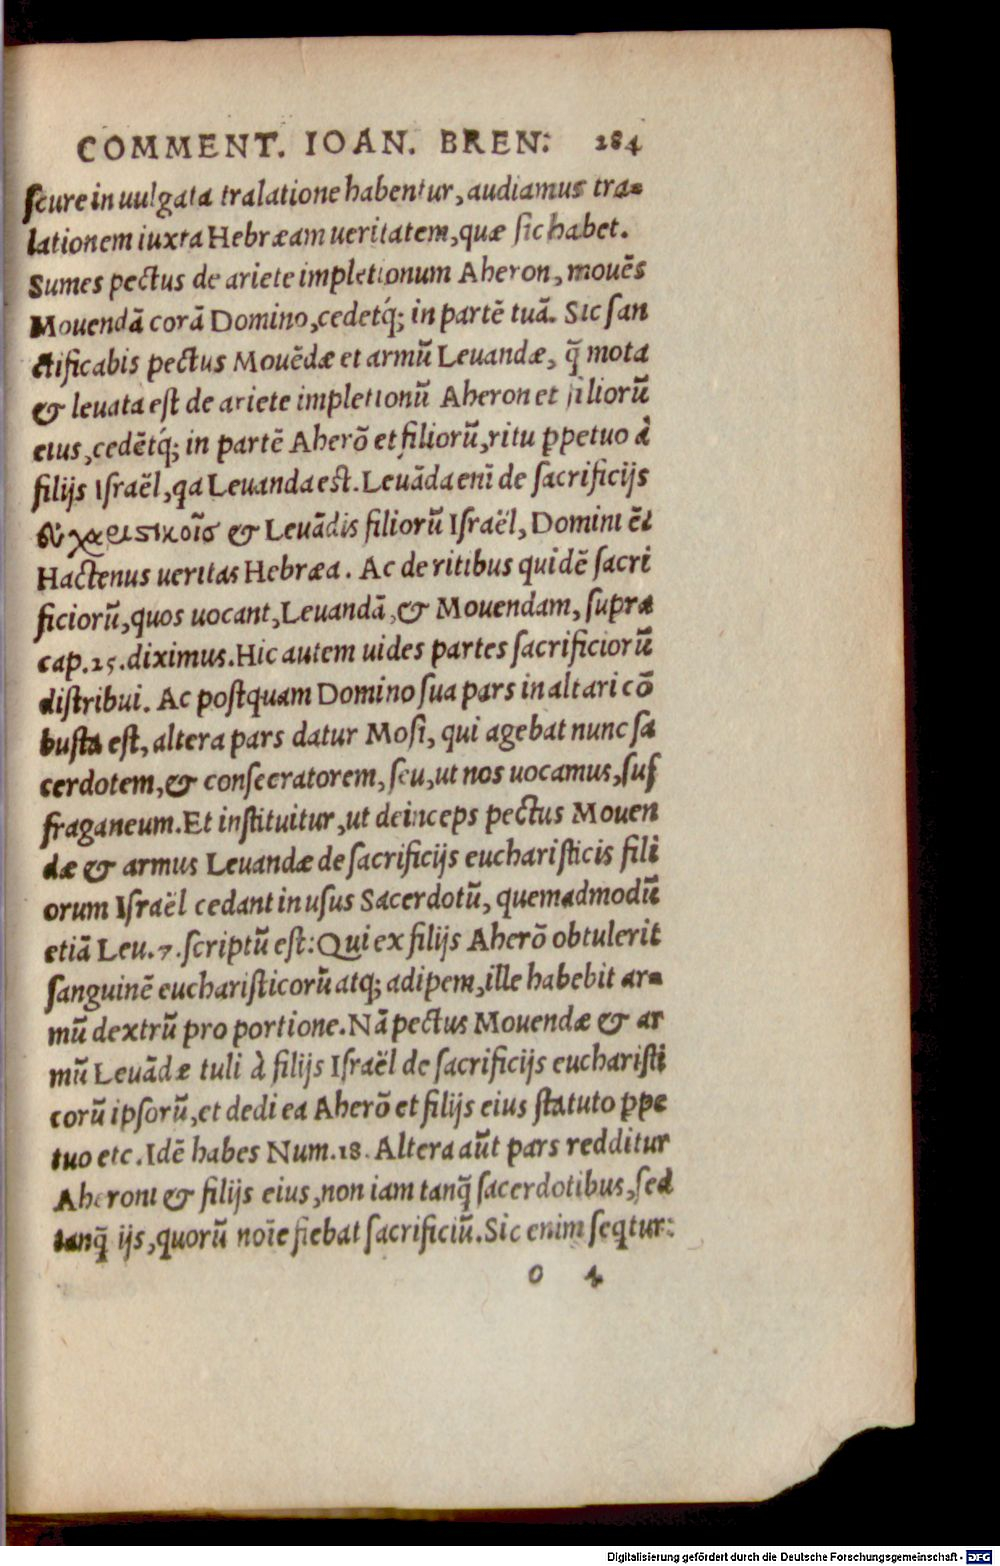 COMMENT. IOAN. BREN: 284
ſcure in uulgata tralatione habentur, audiamus tra-
lationem iuxta Hebræam ueritatem, quæ ſic habet.
Sumes pectus de ariete impletionum Aheron, mouēs
Mouendā corā Domino, cedetq́; in partē tuā. Sic ſan
ctificabis pectus Mouēdæ et armū Leuandæ, q̄ mota
& leuata eſt de ariete impletionū Aheron et filiorū
eius, cedētq́; in partē Aherō et filiorū, ritu ꝑpetuo à
filijs Iſraël, qa Leuanda est. Leuāda enī de ſacrificijs
εὐχαριστικοῖσ & Leuādis filiorū Iſraël, Domini ēt
Hactenus ueritas Hebræa. Ac de ritibus quidē ſacri
ficiorū, quos uocant, Leuandā, & Mouendam, ſupra
cap. 25. diximus. Hic autem uides partes ſacrificiorū
diſtribui. Ac poſtquam Domino ſua pars in altari cō
buſta eſt, altera pars datur Moſi, qui agebat nunc ſa
cerdotem, & conſecratorem, ſeu, ut nos uocamus, ſuf
fraganeum. Et inſtituitur, ut deinceps pectus Mouen
dæ & armus Leuandæ de ſacrificijs euchariſticis fili
orum Iſraël cedant in uſus Sacerdotū, quemadmodū
etiā Leu. 7. ſcriptū eſt: Qui ex filijs Aherō obtulerit
ſanguinē euchariſticorū atq; adipem, ille habebit ar-
mū dextrū pro portione. Nā pectus Mouendæ & ar
mū Leuādæ tuli à filijs Iſraël de ſacrificijs euchariſti
corū ipſorū, et dedi ea Aherō et filijs eius ſtatuto ꝑpe
tuo etc. Idē habes Num. 18. Altera aūt pars redditur
Aheroni & filijs eius, non iam tanq̄ ſacerdotibus, ſed
tanq̄ ijs, quorū noīe fiebat ſacrificiū. Sic enim ſeqtur:
o 4
Digitalisierung gefördert durch die Deutsche Forschungsgemeinschaft - DFG